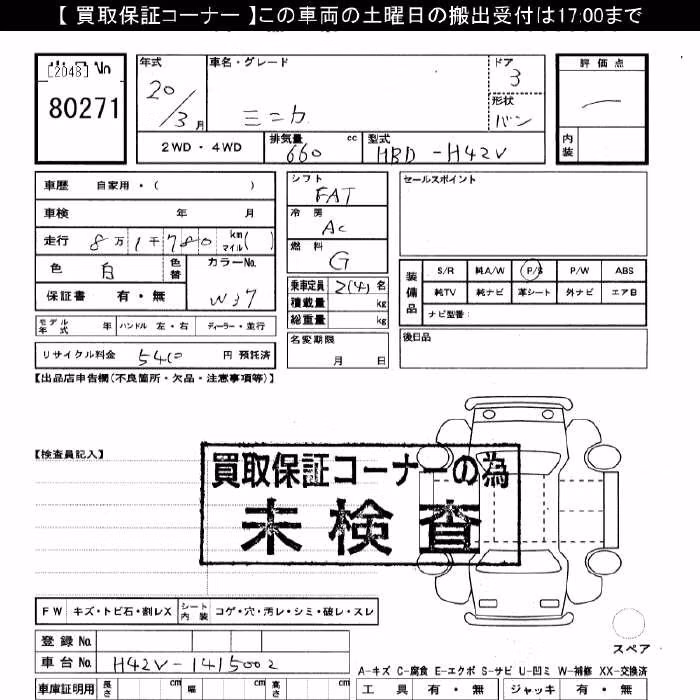 【 買取保証コーナー 】この車両の土曜日の搬出受付は17:00まで
[2048]
80271
年式
20/3月
車名・グレード
ミニカ
ドア
3
形状
バン
評価点
内装
2WD・4WD
排気量 660 cc
型式 HBD-H42V
車歴 自家用・( )
車検 年 月
走行 8万1千780 km マイル ( )
色 白 色替
カラーNo. W37
保証書 有・無
モデル年式 年 ハンドル 左・右 ディーラー・並行
リサイクル料金 5410 円 預託済
シフト FAT
冷房 AC
燃料 G
乗車定員 2(4) 名
積載量 kg
総重量 kg
名変期限
月 日
セールスポイント
装備品
S/R 純A/W P/S P/W ABS
純TV 純ナビ 革シート 外ナビ エアB
ナビ型番:
後日品
【出品店申告欄(不良箇所・欠品・注意事項等)】
【検査員記入】
買取保証コーナーの為
未検査
FW キズ・トビ石・割レX シート内装 コゲ・穴・汚レ・シミ・破レ・スレ
スペア
登録No.
車台No. H42V-1415002
A-キズ C-腐食 E-エクボ S-サビ U-凹ミ W-補修 XX-交換済
車庫証明用 長さ cm 幅 cm 高さ cm
工具 有・無 ジャッキ 有・無